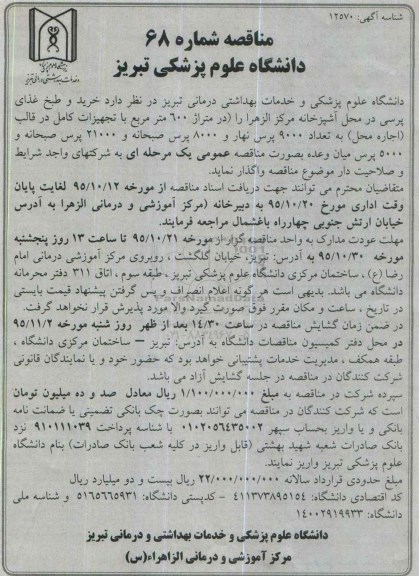 شناسه آگهی: ۱۲۵۷۰
مناقصه شماره ۶۸
دانشگاه علوم پزشکی تبریز
دانشگاه علوم پزشکی و خدمات بهداشتی درمانی تبریز در نظر دارد خرید و طبخ غذای
پرسی در محل آشپزخانه مرکز الزهرا را (در متراژ ۶۰۰ متر مربع با تجهیزات کامل در قالب
(اجاره محل) به تعداد ۹۰۰۰ پرس نهار و ۸۰۰۰ پرس صبحانه و ۲۱۰۰۰ پرس صبحانه و
۵۰۰۰ پرس میان وعده بصورت مناقصه عمومی یک مرحله ای به شرکتهای واجد شرایط
و صلاحیت دار موضوع مناقصه واگذار نماید.
متقاضیان محترم می توانند جهت دریافت اسناد مناقصه از مورخه ۹۵/۱۰/۱۲ لغایت پایان
وقت اداری مورخ ۹۵/۱۰/۲۰ به دبیرخانه (مرکز آموزشی و درمانی الزهرا به آدرس
خیابان ارتش جنوبی چهارراه باغشمال مراجعه فرمایند.
مهلت عودت مدارک به واحد مناقصه گزار از مورخه ۹۵/۱۰/۲۱ تا ساعت ۱۳ روز پنجشنبه
مورخه ۹۵/۱۰/۳۰ به آدرس: تبریز، خیابان گلگشت ، روبروی مرکز آموزشی درمانی امام
رضا (ع) ، ساختمان مرکزی دانشگاه علوم پزشکی تبریز ، طبقه سوم ، اتاق ۳۱۱ دفتر محرمانه
دانشگاه می باشد. بدیهی است هر گونه اعلام انصراف و پس گرفتن پیشنهاد قیمت بایستی
در تاریخ ، ساعت و مکان مقرر فوق صورت گیرد والا مورد پذیرش قرار نخواهد گرفت.
در ضمن زمان گشایش مناقصه در ساعت ۱۴/۳۰ بعد از ظهر روز شنبه مورخه ۹۵/۱۱/۲
در محل دفتر کمیسیون مناقصات دانشگاه به آدرس: تبریز – ساختمان مرکزی دانشگاه ،
طبقه همکف ، مدیریت خدمات پشتیبانی خواهد بود که حضور خود و یا نمایندگان قانونی
شرکت کنندگان در مناقصه در جلسه گشایش آزاد می باشد.
سپرده شرکت در مناقصه به مبلغ ۱/۱۰۰/۰۰۰/۰۰۰ ریال معادل صد و ده میلیون تومان
است که شرکت کنندگان در مناقصه می توانند بصورت چک بانکی تضمینی یا ضمانت نامه
بانکی و یا واریز بحساب سپهر ۰۱۰۲۰۵۶۴۳۵۰۰۲ با شناسه پرداخت ۹۱۰۱۱۱۰۳۹ نزد
بانک صادرات شعبه شهید بهشتی (قابل واریز در کلیه شعب بانک صادرات) بنام دانشگاه
علوم پزشکی تبریز واریز نمایند.
مبلغ حدودی قرارداد سالانه ۲۲/۰۰۰/۰۰۰/۰۰۰ ریال بیست و دو میلیارد ریال
کد اقتصادی دانشگاه: ۴۱۱۳۷۳۸۹۵۱۵۴ – کدپستی دانشگاه: ۵۱۶۵۶۶۵۹۳۱ و شناسه ملی
دانشگاه: ۱۴۰۰۲۹۱۹۹۳۳
دانشگاه علوم پزشکی و خدمات بهداشتی و درمانی تبریز
مرکز آموزشی و درمانی الزاهراء(س)